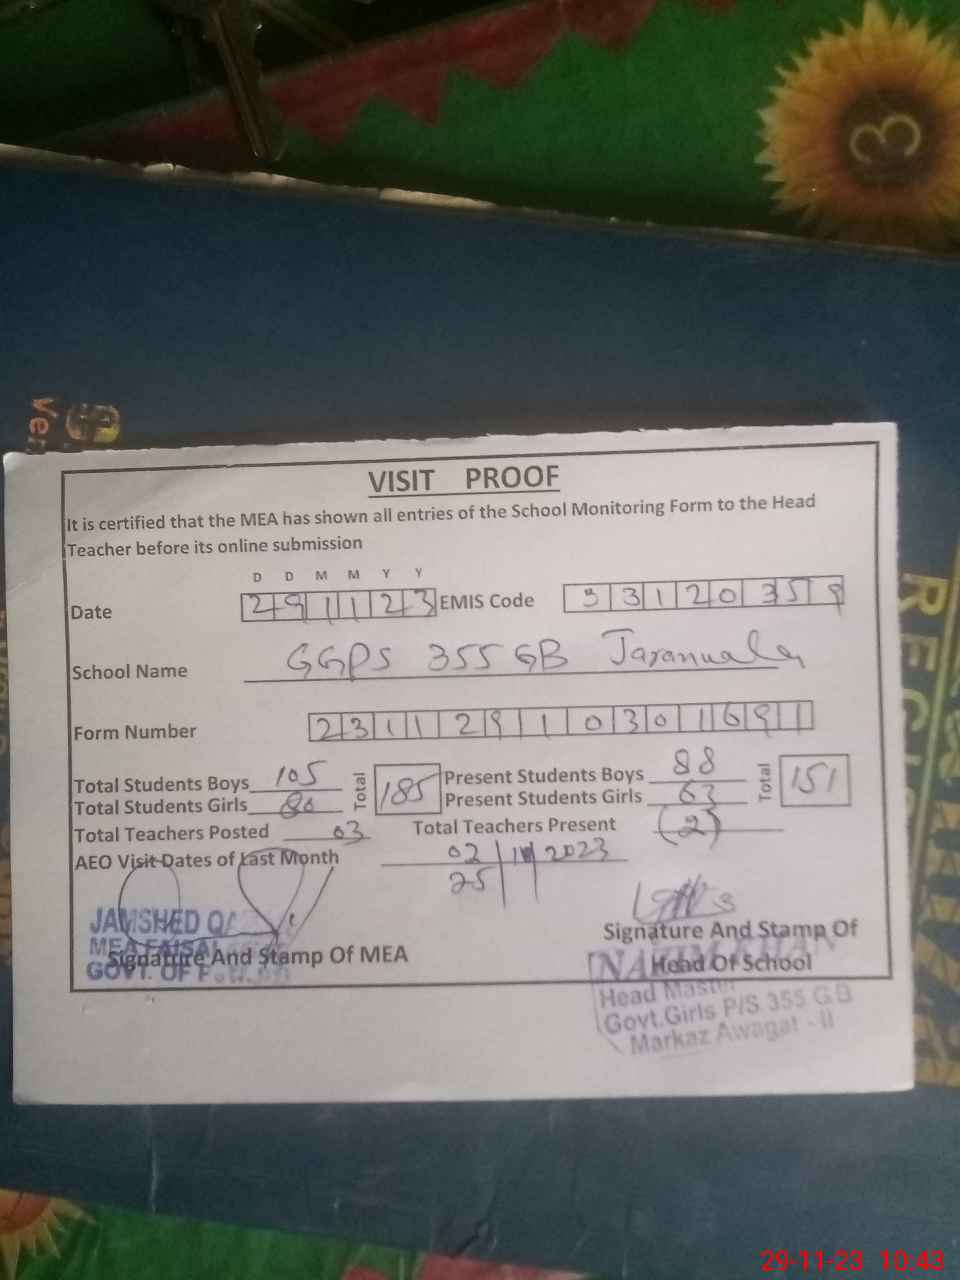 VISIT PROOF
It is certified that the MEA has shown all entries of the School Monitoring Form to the Head
Teacher before its online submission
D D M M Y Y
Date 291123 EMIS Code 33120359
School Name GGPS 355 GB Jaranwala
Form Number 23112910301691
Total Students Boys 105 Total 185 Present Students Boys 88 Total 151
Total Students Girls 80 Present Students Girls 63
Total Teachers Posted 03 Total Teachers Present (2)
AEO Visit Dates of Last Month 02 2023
25
JAMSHED
MEA FAISAL
GOVT. OF
Signature And Stamp Of MEA
Signature And Stamp Of
Head Of School
Head Master
Govt.Girls P/S 355 GB
Markaz Awagat - II
Ver
29-11-23 10:43